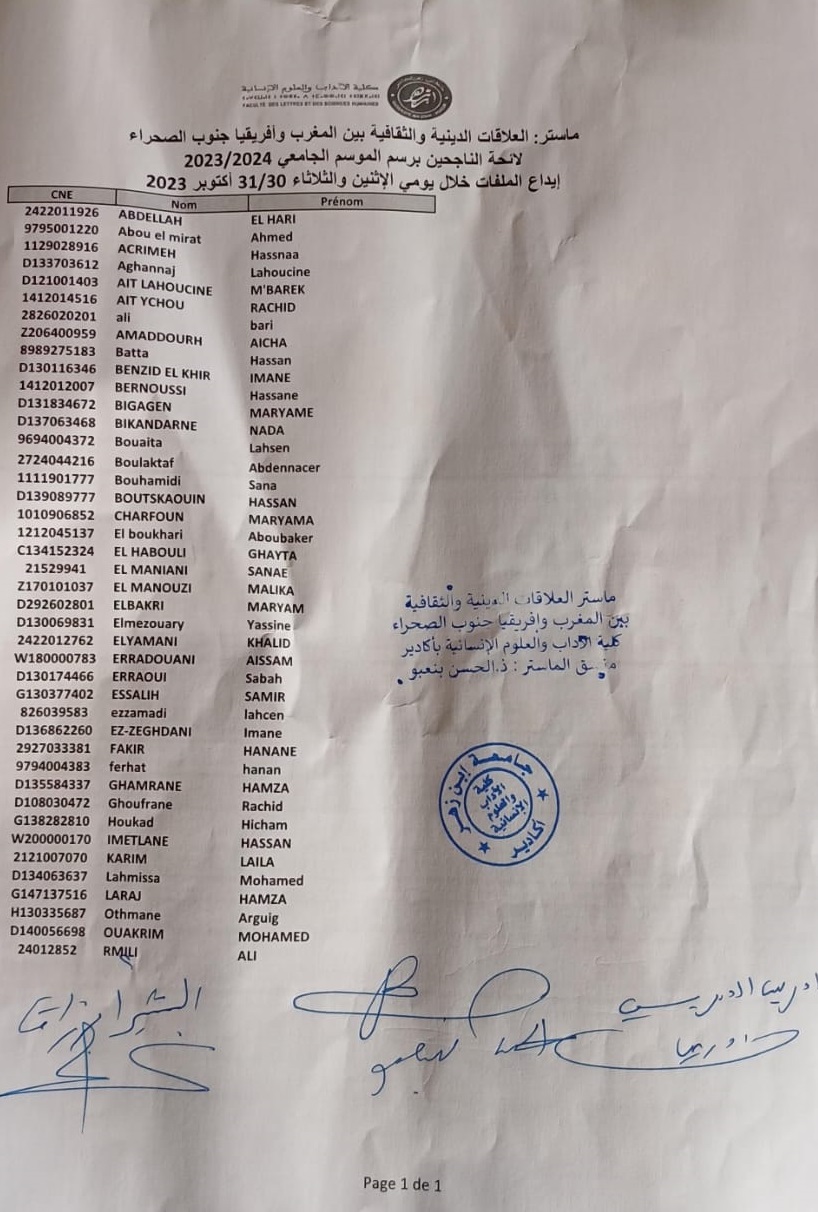 كلية الآداب والعلوم الإنسانية
FACULTE DES LETTRES ET DES SCIENCES HUMAINES
ماستر: العلاقات الدينية والثقافية بين المغرب وأفريقيا جنوب الصحراء
لائحة الناجحين برسم الموسم الجامعي 2023/2024
إيداع الملفات خلال يومي الإثنين والثلاثاء 31/30 أكتوبر 2023
CNE Nom Prénom
2422011926 ABDELLAH EL HARI
9795001220 Abou el mirat Ahmed
1129028916 ACRIMEH Hassnaa
D133703612 Aghannaj Lahoucine
D121001403 AIT LAHOUCINE M'BAREK
1412014516 AIT YCHOU RACHID
2826020201 ali bari
Z206400959 AMADDOURH AICHA
8989275183 Batta Hassan
D130116346 BENZID EL KHIR IMANE
1412012007 BERNOUSSI Hassane
D131834672 BIGAGEN MARYAME
D137063468 BIKANDARNE NADA
9694004372 Bouaita Lahsen
2724044216 Boulaktaf Abdennacer
1111901777 Bouhamidi Sana
D139089777 BOUTSKAOUIN HASSAN
1010906852 CHARFOUN MARYAMA
1212045137 El boukhari Aboubaker
C134152324 EL HABOULI GHAYTA
21529941 EL MANIANI SANAE
Z170101037 EL MANOUZI MALIKA
D292602801 ELBAKRI MARYAM
D130069831 Elmezouary Yassine
2422012762 ELYAMANI KHALID
W180000783 ERRADOUANI AISSAM
D130174466 ERRAOUI Sabah
G130377402 ESSALIH SAMIR
826039583 ezzamadi lahcen
D136862260 EZ-ZEGHDANI Imane
2927033381 FAKIR HANANE
9794004383 ferhat hanan
D135584337 GHAMRANE HAMZA
D108030472 Ghoufrane Rachid
G138282810 Houkad Hicham
W200000170 IMETLANE HASSAN
2121007070 KARIM LAILA
D134063637 Lahmissa Mohamed
G147137516 LARAJ HAMZA
H130335687 Othmane Arguig
D140056698 OUAKRIM MOHAMED
24012852 RMILI ALI
ماستر العلاقات الدينية والثقافية
بين المغرب وإفريقيا جنوب الصحراء
كلية الآداب والعلوم الإنسانية بأكادير
منسق الماستر : ذ.الحسن بنعبو
جامعة ابن زهر
كلية
الآداب
والعلوم
الإنسانية
أكادير
Page 1 de 1